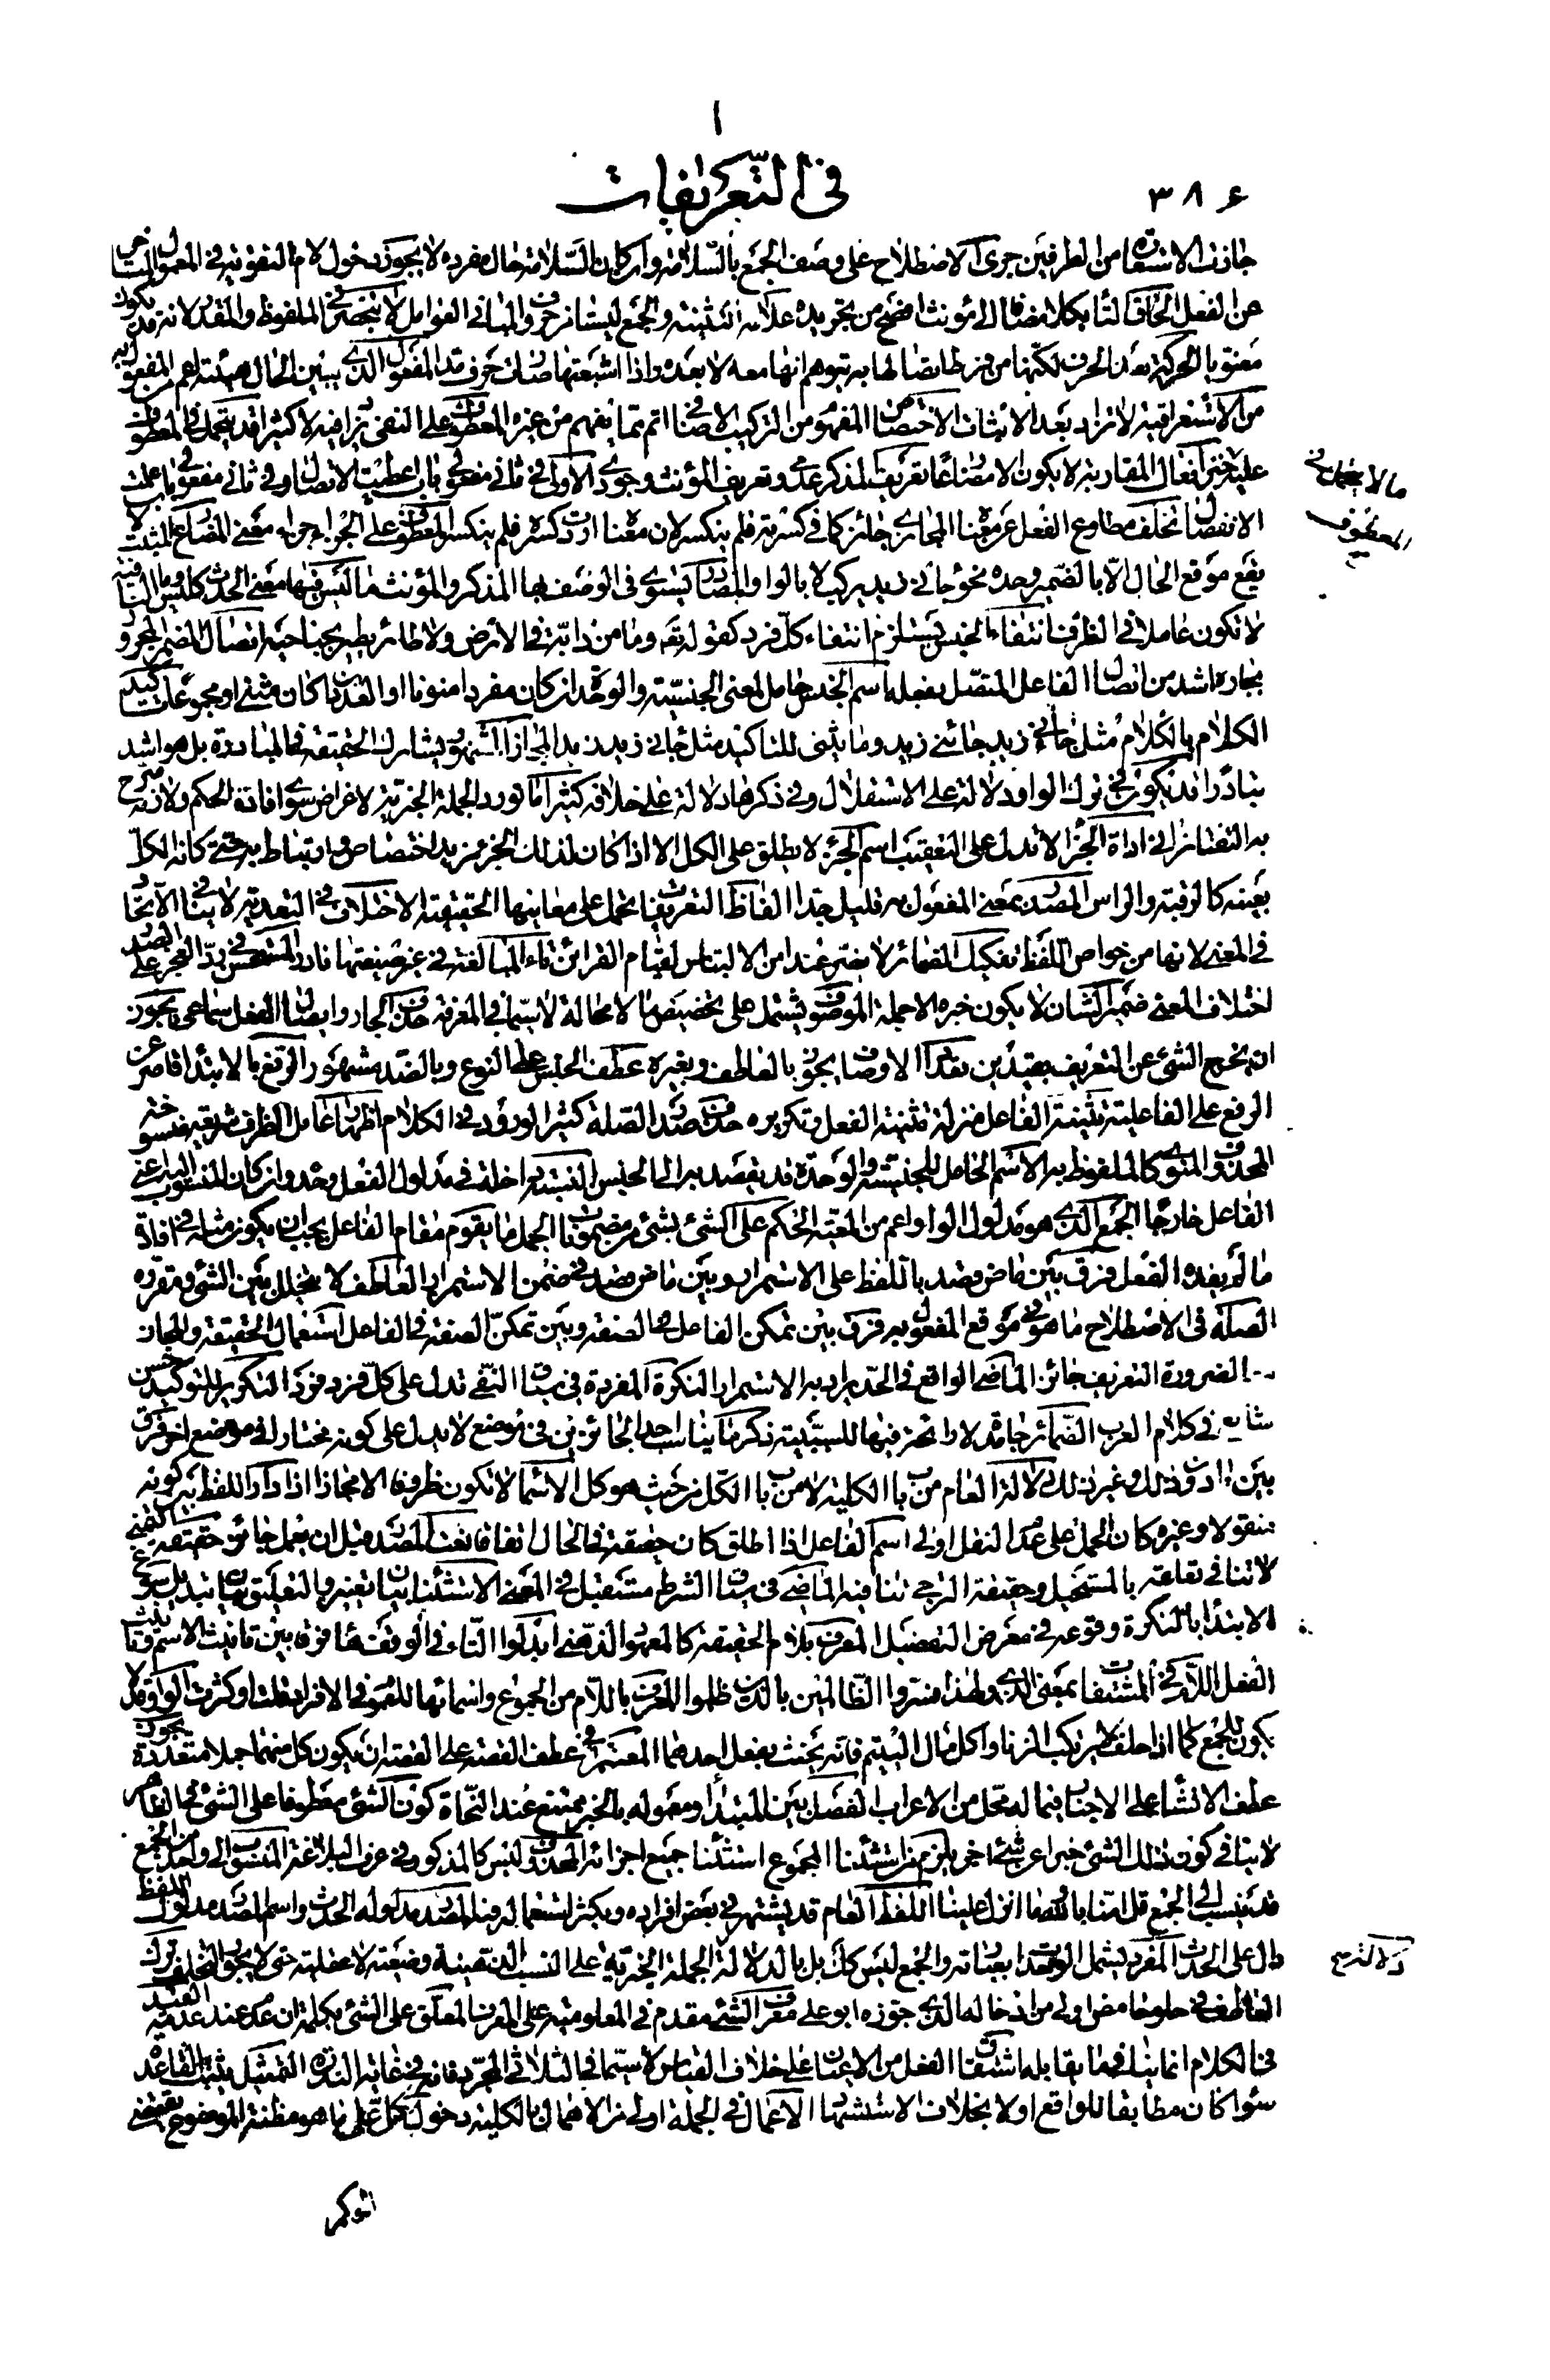 في التعريفات
٣٨٤
جازت الاستعارة من الطرفين جرى الاصطلاح على وصف الجمع بالسلامة وان كان السلامة حال مفرده لا يجوز دخول لام التقوية في المعمول المتاخر
عن الفعل الحاق التا بكلا مضافا الى مؤنث افصح من تجريده علامة التثنية والجمع ليستا من حروف المباني العوامل لا تنحصر في الملفوظ والمقدر لانه قد يكون
معنويا الحركة بعد الحرف لكنها من فرط اتصالها به يتوهم انها معه لا بعده واذا اشبعتها صارت حرف مد المفعول الذي يبين الحال هيئته اعم من المفعول به
من الاستغراقية لا تزاد بعد الاثبات الاختصاص المفهوم من التركيب الاضافي اتم مما يفهم من غيره المعطوف على النفي يزاد فيه لا كثيرا قد يتحمل في المعطوف
ما لا يحتمل في
المعطوف
عليه خبر افعال المقاربة لا يكون الا مضارعا تعريف المذكر عدمي وتعريف المؤنث وجودي الاولى في ثاني مفعولي باب اعطيت الاتصال وفي ثاني مفعولي باب علمت
الانفصال تخلف مطاوع الفعل عن معناه المجازي جائز كما في كسرته فلم ينكسر لان معناه اردت كسره فلم ينكسر المعطوف على الجزاء جزاء معنى المضارع المثبت لا
يقع موقع الحال الا بالضمير وحده نحو جائني زيد يركب لا بالواو المصادر يستوي في الوصف بها المذكر والمؤنث ما ليس فيها معنى الحدث كليس وما النافية
لا تكون عاملا في الظرف انتفاء الجنس يستلزم انتفاء كل فرد كقوله تعه وما من دابة في الارض ولا طائر يطير بجناحيه اتصال الضمير المجرور
بجاره اشد من اتصال الفاعل المتصل بفعله اسم الجنس حامل لمعنى الجنسية والوحدة ان كان مفردا منونا او العدد ان كان مثنى او مجموعا تاكيد
الكلام بالكلام مثل جائني زيد جائني زيد وما يثنى للتاكيد مثل جائني زيد زيد المجاز اذا اشتهر يشارك الحقيقة في المبادرة بل هو اشد
تبادرا قد يكون في ترك الواو دلالة على الاستقلال وفي ذكرها دلالة على خلافه كثيرا ما تورد الجملة الخبرية لاغراض سوى افادة الحكم ولازمه صرح
به التفتازاني اداة الجزا لا تدل على التعقيب اسم الجزء لا يطلق على الكل الا اذا كان لذلك الجزء مزيد اختصاص وارتباط به حتى كانه الكل
بعينه كالرقبة والراس المصدر بمعنى المفعول به قليل جدا الفاظ التعريف تحمل على معانيها الحقيقية الاختلاف في التعدية لا ينافي الاتحاد
في المعنى لانها من خواص اللفظ تفكيك الضمائر لا يضر عند امن الالتباس لقيام القرائن تاء المبالغة في غير صيغتها نادر المستحسن في رد العجز على الصدر
اختلاف المعنى ضمير الشان لا يكون خبره الا جملة الموصوف يشتمل على تخصيص ما لا محالة لا سيما في المعرفة حذف الجار وايصال الفعل سماعي يجوز
ان يخرج الشيء عن التعريف بقيدين تعدد الاوصاف يجوز بالعاطف وبغيره عطف الجنس على النوع وبالضد مشهور الرفع بالابتدا قاصر عن
الرفع على الفاعلية تثنية الفاعل منزلة تثنية الفعل وتكريره حذف صدر الصلة كثير الورود في الكلام اظهار عامل الظرف شريعة منسوخة
المحذوف المنوي كالملفوظ به الاسم الحامل للجنسية والوحدة قد يقصد به الى الجنس النسبة داخلة في مدلول الفعل وحده وان كان المنسوب اليه اعني
الفاعل خارجا الجمع الذي هو مدلول الواو اعم من المعية الحكم على الشيء بشيء من مضمونات الجمل ما يقوم مقام الفاعل يجب ان يكون مثله في افادة
ما لم يفده الفعل فرق بين ماض قصد باللفظ على الاستمرار وبين ماض قصد في ضمن الاستمرار العاطف لا يتخلل بين الشيء ومقرره
الصلة في الاصطلاح ما هو في موقع المفعول به فرق بين تمكن الفاعل من الصفة وبين تمكن الصفة في الفاعل استعمال الحقيقة والمجاز
الضرورة التعريف جائز الماضي الواقع في الحد يراد به الاستمرار النكرة المفردة في سياق النفي تدل على كل فرد فرد التكرير للتوكيد حسن
شايع في كلام العرب الضمائر جامدة لا رائحة فيها للسببية ذكر ما يناسب احد الجائزين في موضع لا يدل على كونه مختارا في موضع اخر فرق
بين اردت ذلك وغير ذلك دلالة العام من باب الكلية لا من باب الكل من حيث هو كل الاسماء لا تكون ظروفا الا مجازا اذا دار اللفظ بين كونه
منقولا وغيره كان الحمل على عدم النقل اولى اسم الفاعل اذا اطلق كان حقيقة في الحال اتفاقا نعت المصدر قبل ان يعمل جائز حقيقة التمني
لا تنافي تعلقه بالمستحيل وحقيقة الترجي تنافيه الماضي في سياق الشرط مستقبل في المعنى الاستثناء بيان تغيير والتعليق بيان تبديل
الابتدا بالنكرة وقوعه في معرض التفصيل المعرف بلام الحقيقة كالمعهود الذهني ابدلوا التاء في الوقف هاء فرقا بين تانيث الاسم وتانيث
الفعل اللام في المشتقات بمعنى الذي ولهذا فسروا الظالمين بالذين ظلموا المعرف باللام من الجموع واسمائها للعموم في الافراد قلت او كثرت الواو قد لا
يكون للجمع كما اذا حلف لا يرتكب الزنا واكل مال اليتيم فانه يحنث بفعل احدهما المعتبر في عطف القصة على القصة ان يكون كل منهما جملا متعددة يجوز
عطف الانشاء على الاخبار فيما له محل من الاعراب الفصل بين المبتدا ومعموله بالخبر ممتنع عند النحاة كون الشيء معطوفا على الشيء في الظاهر
لا ينافي كون ذلك الشيء خبرا عن شيء اخر يلزم من استثناء المجموع استثناء جميع اجزائه المحذوف ليس كالمذكور في عرف البلاغة المنسوب الى واحد من الجمع
قد ينسب الى الجمع قل امنا بالله وما انزل علينا اللفظ العام قد يشتهر في بعض افراده ويكثر استعماله فيه المصدر مدلوله الحدث واسم المصدر مدلوله اللفظ
دال على الحدث المفرد يشمل الواحد بعينه والجمع ليس كك بل بالدلالة الجملة الخبرية على النسب الذهنية وضعية لا عقلية حتى لا يجوز التخلف ترك
العاطف في حلو حامض اولى من ادخاله الذي جوزه ابو علي معرف الشيء مقدم في المعلومية على المعرف المعلق على الشيء بكلمة ان عدم عند عدمه القيد
في الكلام انما ينبا فيما يقابله اشتقاق الفعل من الاعيان على خلاف القياس لا سيما في الثلاثي المجرد فانه في غاية الندرة التمثيل يثبت القاعدة
سواء كان مطابقا للواقع او لا بخلاف الاستشهاد الاعمال في الجملة اولى من الاهمال بالكلية دخول كل على ما هو مظنة الموضوع يقتضي